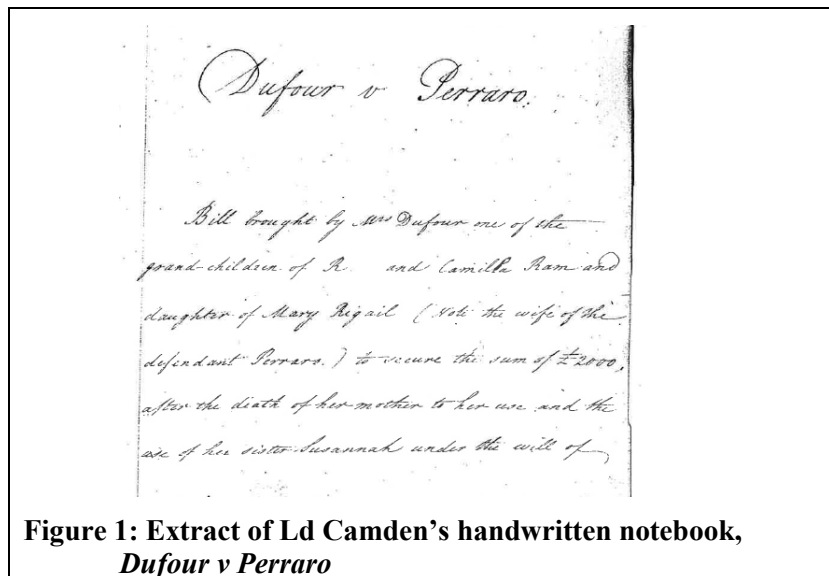 Dufour v Perraro.
Bill brought by Mrs Dufour one of the
grand-children of R and Camilla Ram and
daughter of Mary Rigail (Note the wife of the
defendant Perraro.) to secure the sum of £2000,
after the death of her mother to her use and the
use of her sister Susannah under the will of
Figure 1: Extract of Ld Camden's handwritten notebook,
Dufour v Perraro